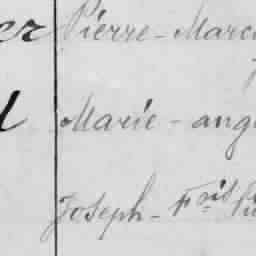 er Pierre - Marc
Marie - ang
Joseph - Fris